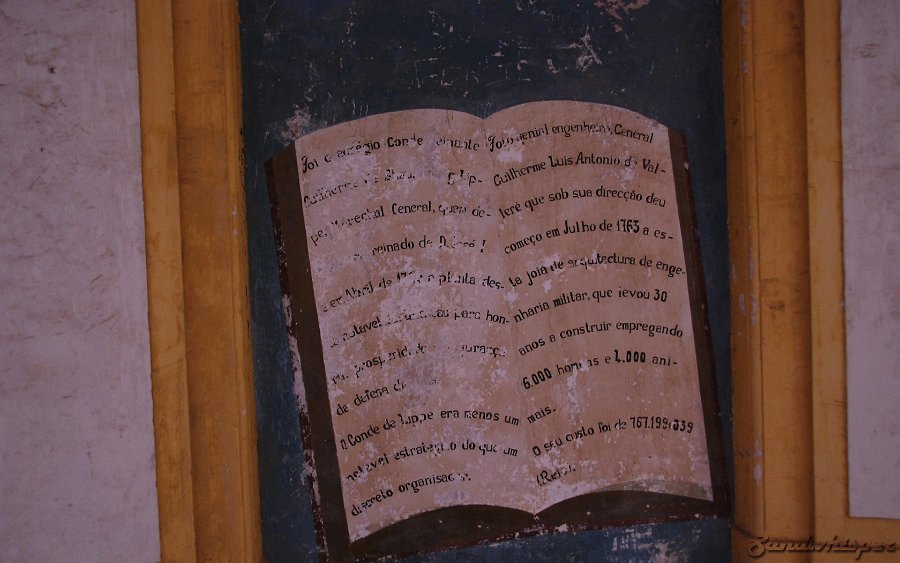 Foi o egrégio Conde
Guilherme
pe, Marechal General, quem de-
reinado de D. José I
Abril de a planta des-
ta notavel para hon-
ra, prosperidade
da defesa
O Conde de Lippe era menos um
notavel estrategico do que um
discreto organisador.
Foi o genial engenheiro, General
Guilherme Luis Antonio de Val-
leré que sob sua direcção deu
começo em Julho de 1763 a es-
ta joia de arquitectura de enge-
nharia militar, que levou 30
anos a construir empregando
6.000 homens e 4.000 ani-
mais.
O seu custo foi de 767.199$039
(Reis).
Sandwhisper